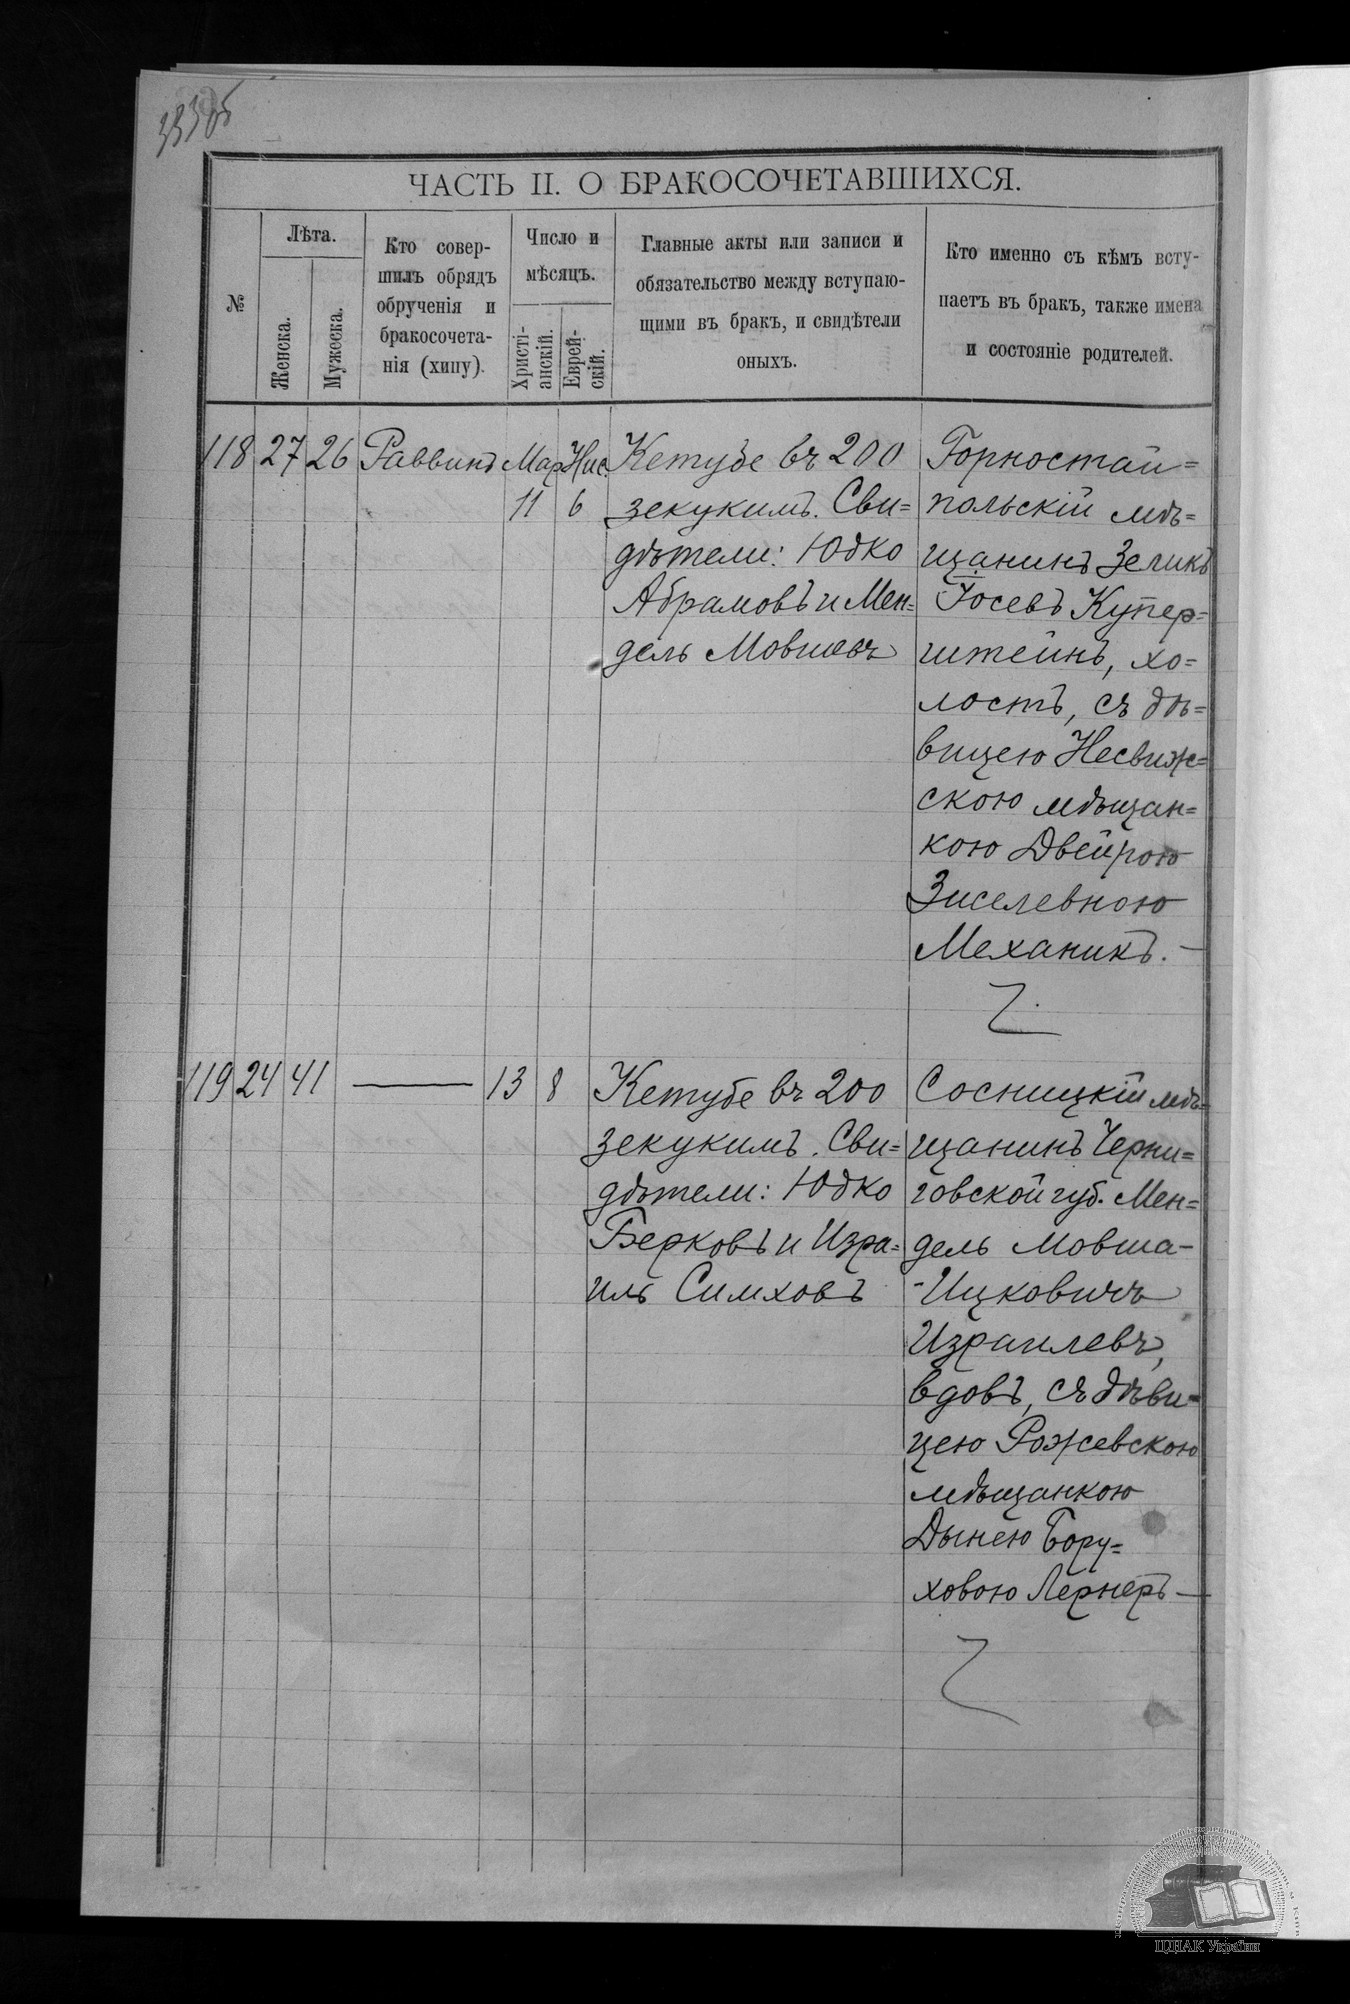 ЧАСТЬ II. О БРАКОСОЧЕТАВШИХСЯ.
№
Лѣта.
Женска.
Мужеска.
Кто совер-
шилъ обрядъ
обрученія и
бракосочета-
нія (хипу).
Число и
мѣсяцъ.
Христі-
анскій.
Еврей-
скій.
Главные акты или записи и
обязательство между вступаю-
щими въ бракъ, и свидѣтели
оныхъ.
Кто именно съ кѣмъ всту-
паетъ въ бракъ, также имена
и состояніе родителей.
118 27 26 Раввинъ Мар. Нис.
11 6
Кетубе въ 200
зекукимъ. Сви=
дѣтели: Юдко
Абрамовъ и Мен=
дель Мовшевъ
Горностай=
польскій мѣ=
щанинъ Зеликъ
Іосевъ Купер=
штейнъ, хо=
лостъ, съ дѣ=
вицею Несвиж=
скою мѣщан=
кою Двейрою
Зиселевною
Механикъ. —
119 24 41 — 13 8
Кетубе въ 200
зекукимъ. Сви=
дѣтели: Юдко
Берковъ и Изра=
иль Симховъ
Сосницкій мѣ=
щанинъ Черни=
говской губ. Мен=
дель Мовша-
-Ицковичъ
Израилевъ,
вдовъ, съ дѣви=
цею Рожевскою
мѣщанкою
Дынею Бору=
ховою Лернеръ —
ЦДІАК України